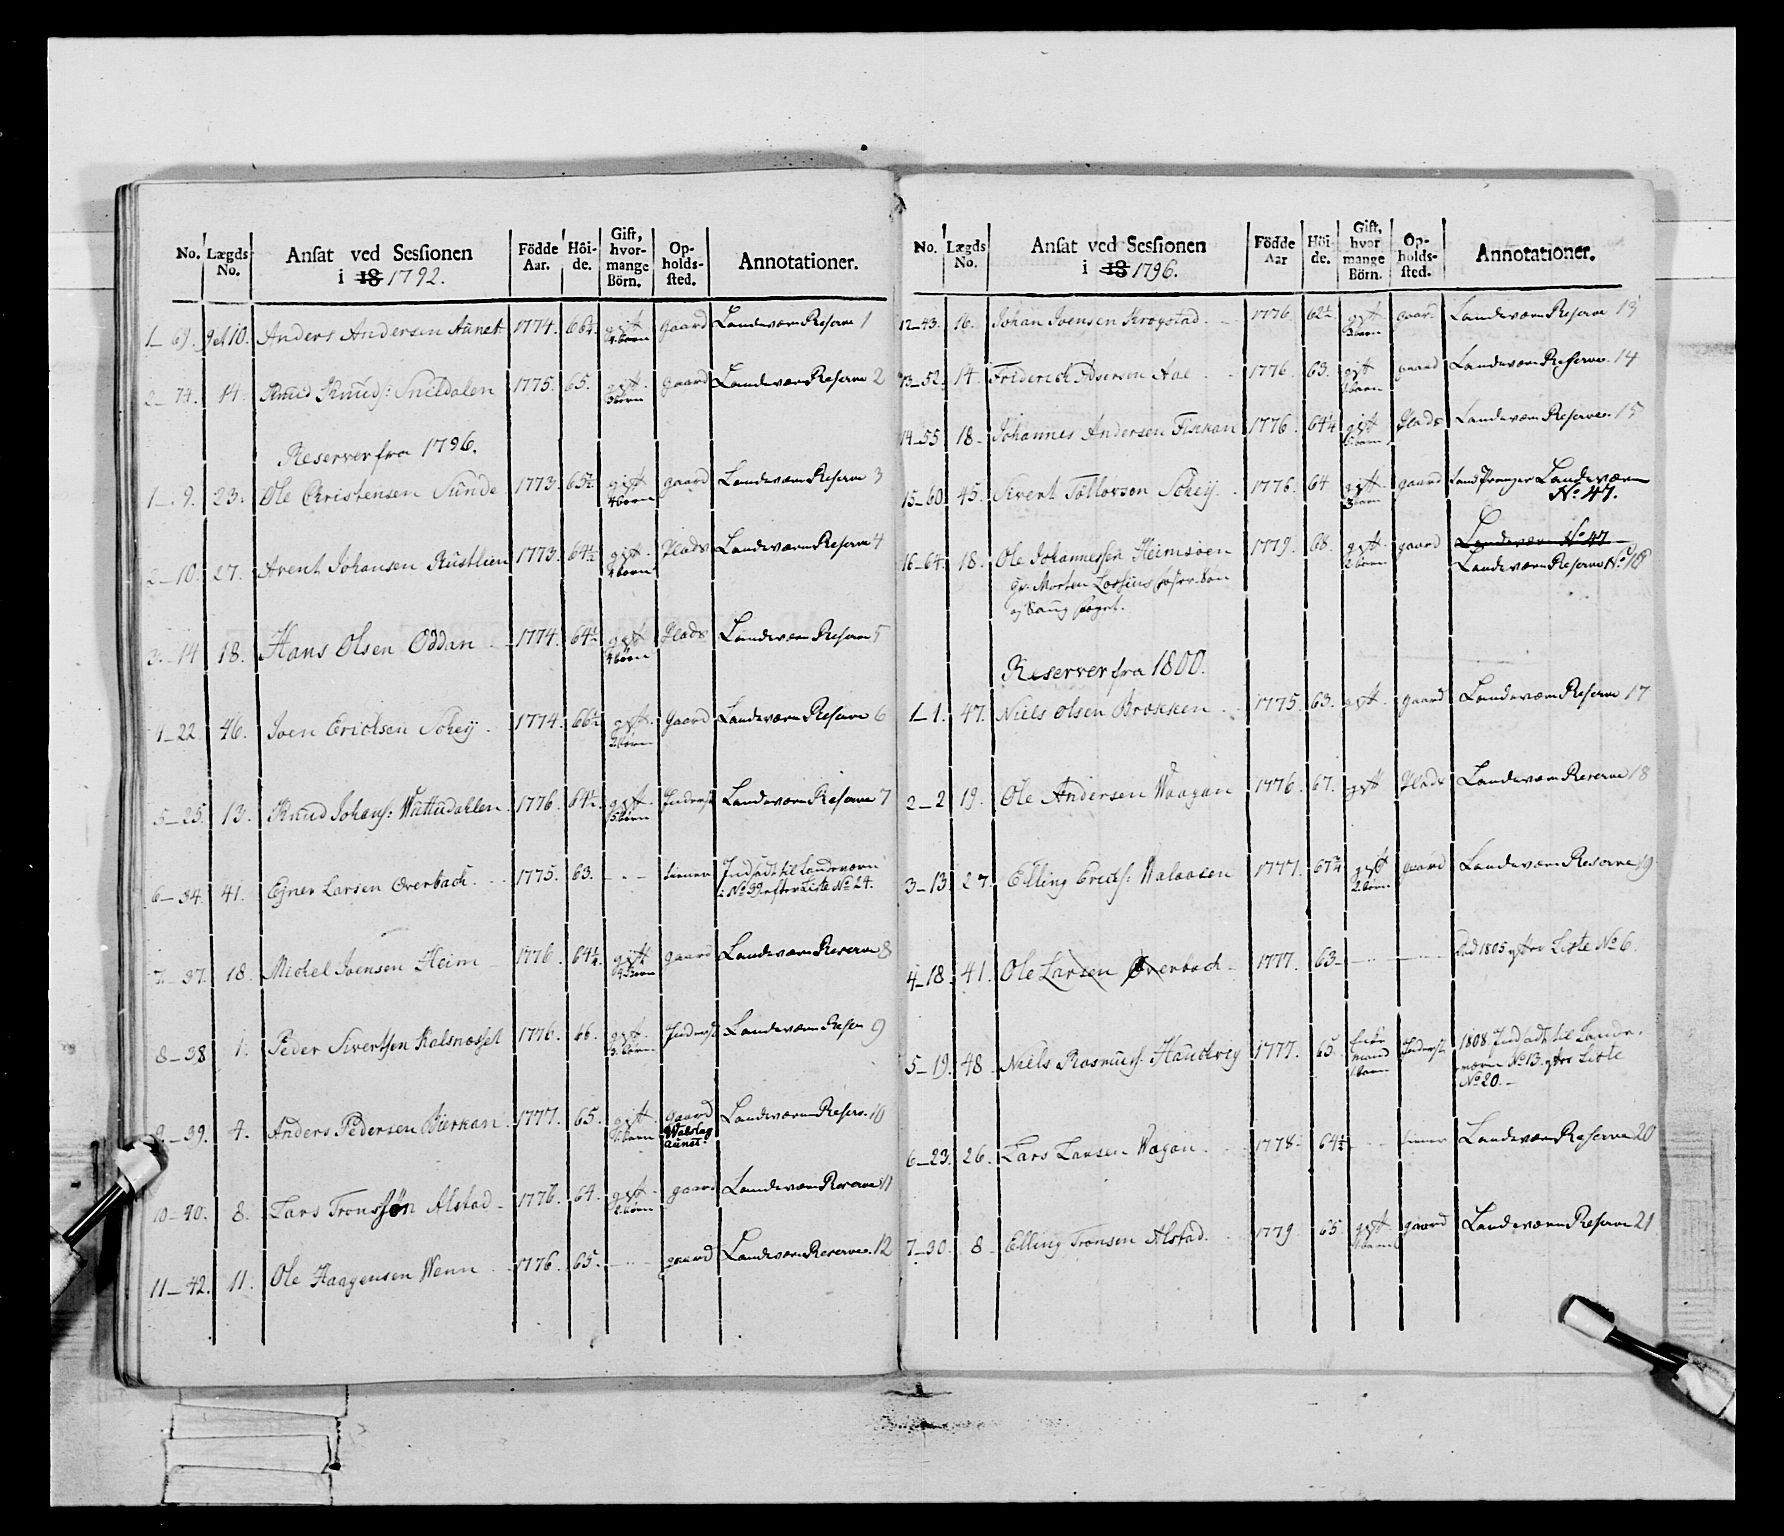 No. Lægds No. Ansat ved Sessionen i 18 1792. Födde Aar. Höi-de. Gift, hvor-mange Börn. Op-holds-sted. Annotationer.
1_ 69. 10. Anders Andersen Aunet 1774. 66¼. gift 4 börn gaard Landeværn Reserve 1
2_ 74. 14. Knud Knuds: Snildalen 1775. 65. gift 3 börn gaard Landeværn Reserve 2
Reserver fra 1796.
1_ 9. 23. Ole Christensen Sunde 1773. 65½. gift 4 börn gaard Landeværn Reserve 3
2_ 10. 27. Arent Johansen Rustlien 1773. 64½ gift 4 börn Plads Landeværn Reserve 4
3._ 14 18. Hans Olsen Oddan 1774. 64½ gift 4 börn Plads Landeværn Reserve 5
_ 22. 46. Joen Erichsen Schey 1774. 66½ gift. 2 börn Gaard Landeværn Reserve 6
5_ 25. 13. Knud Johans: 1776. 64½. gift. 5 börn Inderst Landeværn Reserve 7
6_ 34. 41. Ejner Larsen Overbach 1775. 63. tienner Indsadt til Landeværn
i No 39 efter Liste No 24.
7_ 37. 18. Michel Joensen Heim 1776. 64¼. gift 4 börn gaard Landeværn Reserve 8
8_ 38 1. Peder Sivertsen Kalsnæsset 1776. 66. gift. börn Inderst Landeværn Reser 9
9_ 39. 4. Anders Pedersen Bierkan 1777. 65. gift. börn gaard Landeværn Reserv. 10
Walslag
aunet.
10_ 40. 8. Lars Tronssøn Alstad 1776. 64. gift 2 börn gaard Landeværn Reserve 11
11_ 42. 11. Ole Haagensen Wenn 1776. 65. gaard Landeværn Reserve. 12
No. Lægds No. Ansat ved Sessionen i 18 1796. Födde Aar Höi-de. Gift, hvor mange Börn. Op-holds-sted. Annotationer.
12_43. 16. Johan Joensen Krogstad 1776. 62½. gift 3 börn gaar. Landeværn Reserve 13
13_52. 14. Friderich Adsersen Aae 1776. 63. gift börn gaard Landeværn Reserve. 14
14_55 18. Johannes Andersen Fiskan 1776. 64¼ gift börn Plads Landeværn Reserve. 15
15_60. 45. Sivert Tollovsen Schey 1776. 64 gift. 3 börn gaard Landeværn
No. 47.
16_64. 18. Ole Johannessen Heimsöen 1779. 68. gift. 2 börn gaard Landeværn No 47
Morten Søn Landeværn Reserve No 16
og
Reserver fra 1800.
1_1. 47. Niels Olsen Brækken 1775. 63. gift. gaard Landeværn Reserve 17
2_2 19. Ole Andersen Waagan 1776. 67. gift Plads Landeværn Reserve 18
3_13. 27. Elling Erichs: Walaasen 1777. 67¼ gift 2 börn gaard Landeværn Reserve 19
4_18. 41. Ole Larsen Øverbach 1777. 63_ Död 1805 efter Liste No 6.
5_19. 48 Niels Rasmuss: Hauchvig 1777. 65. Enke mand 1 barn Inderst 1808 Indsadt til Lande-
værn No 13. efter Liste
No 20._
6_23. 26. Lars Larsen Wagan 1778. 64½ tiener Landeværn Reserve 20
7_30. 8 Elling Tronsen Alstad 1779. 65 gift 1 barn gaard Landeværn Reserve 21